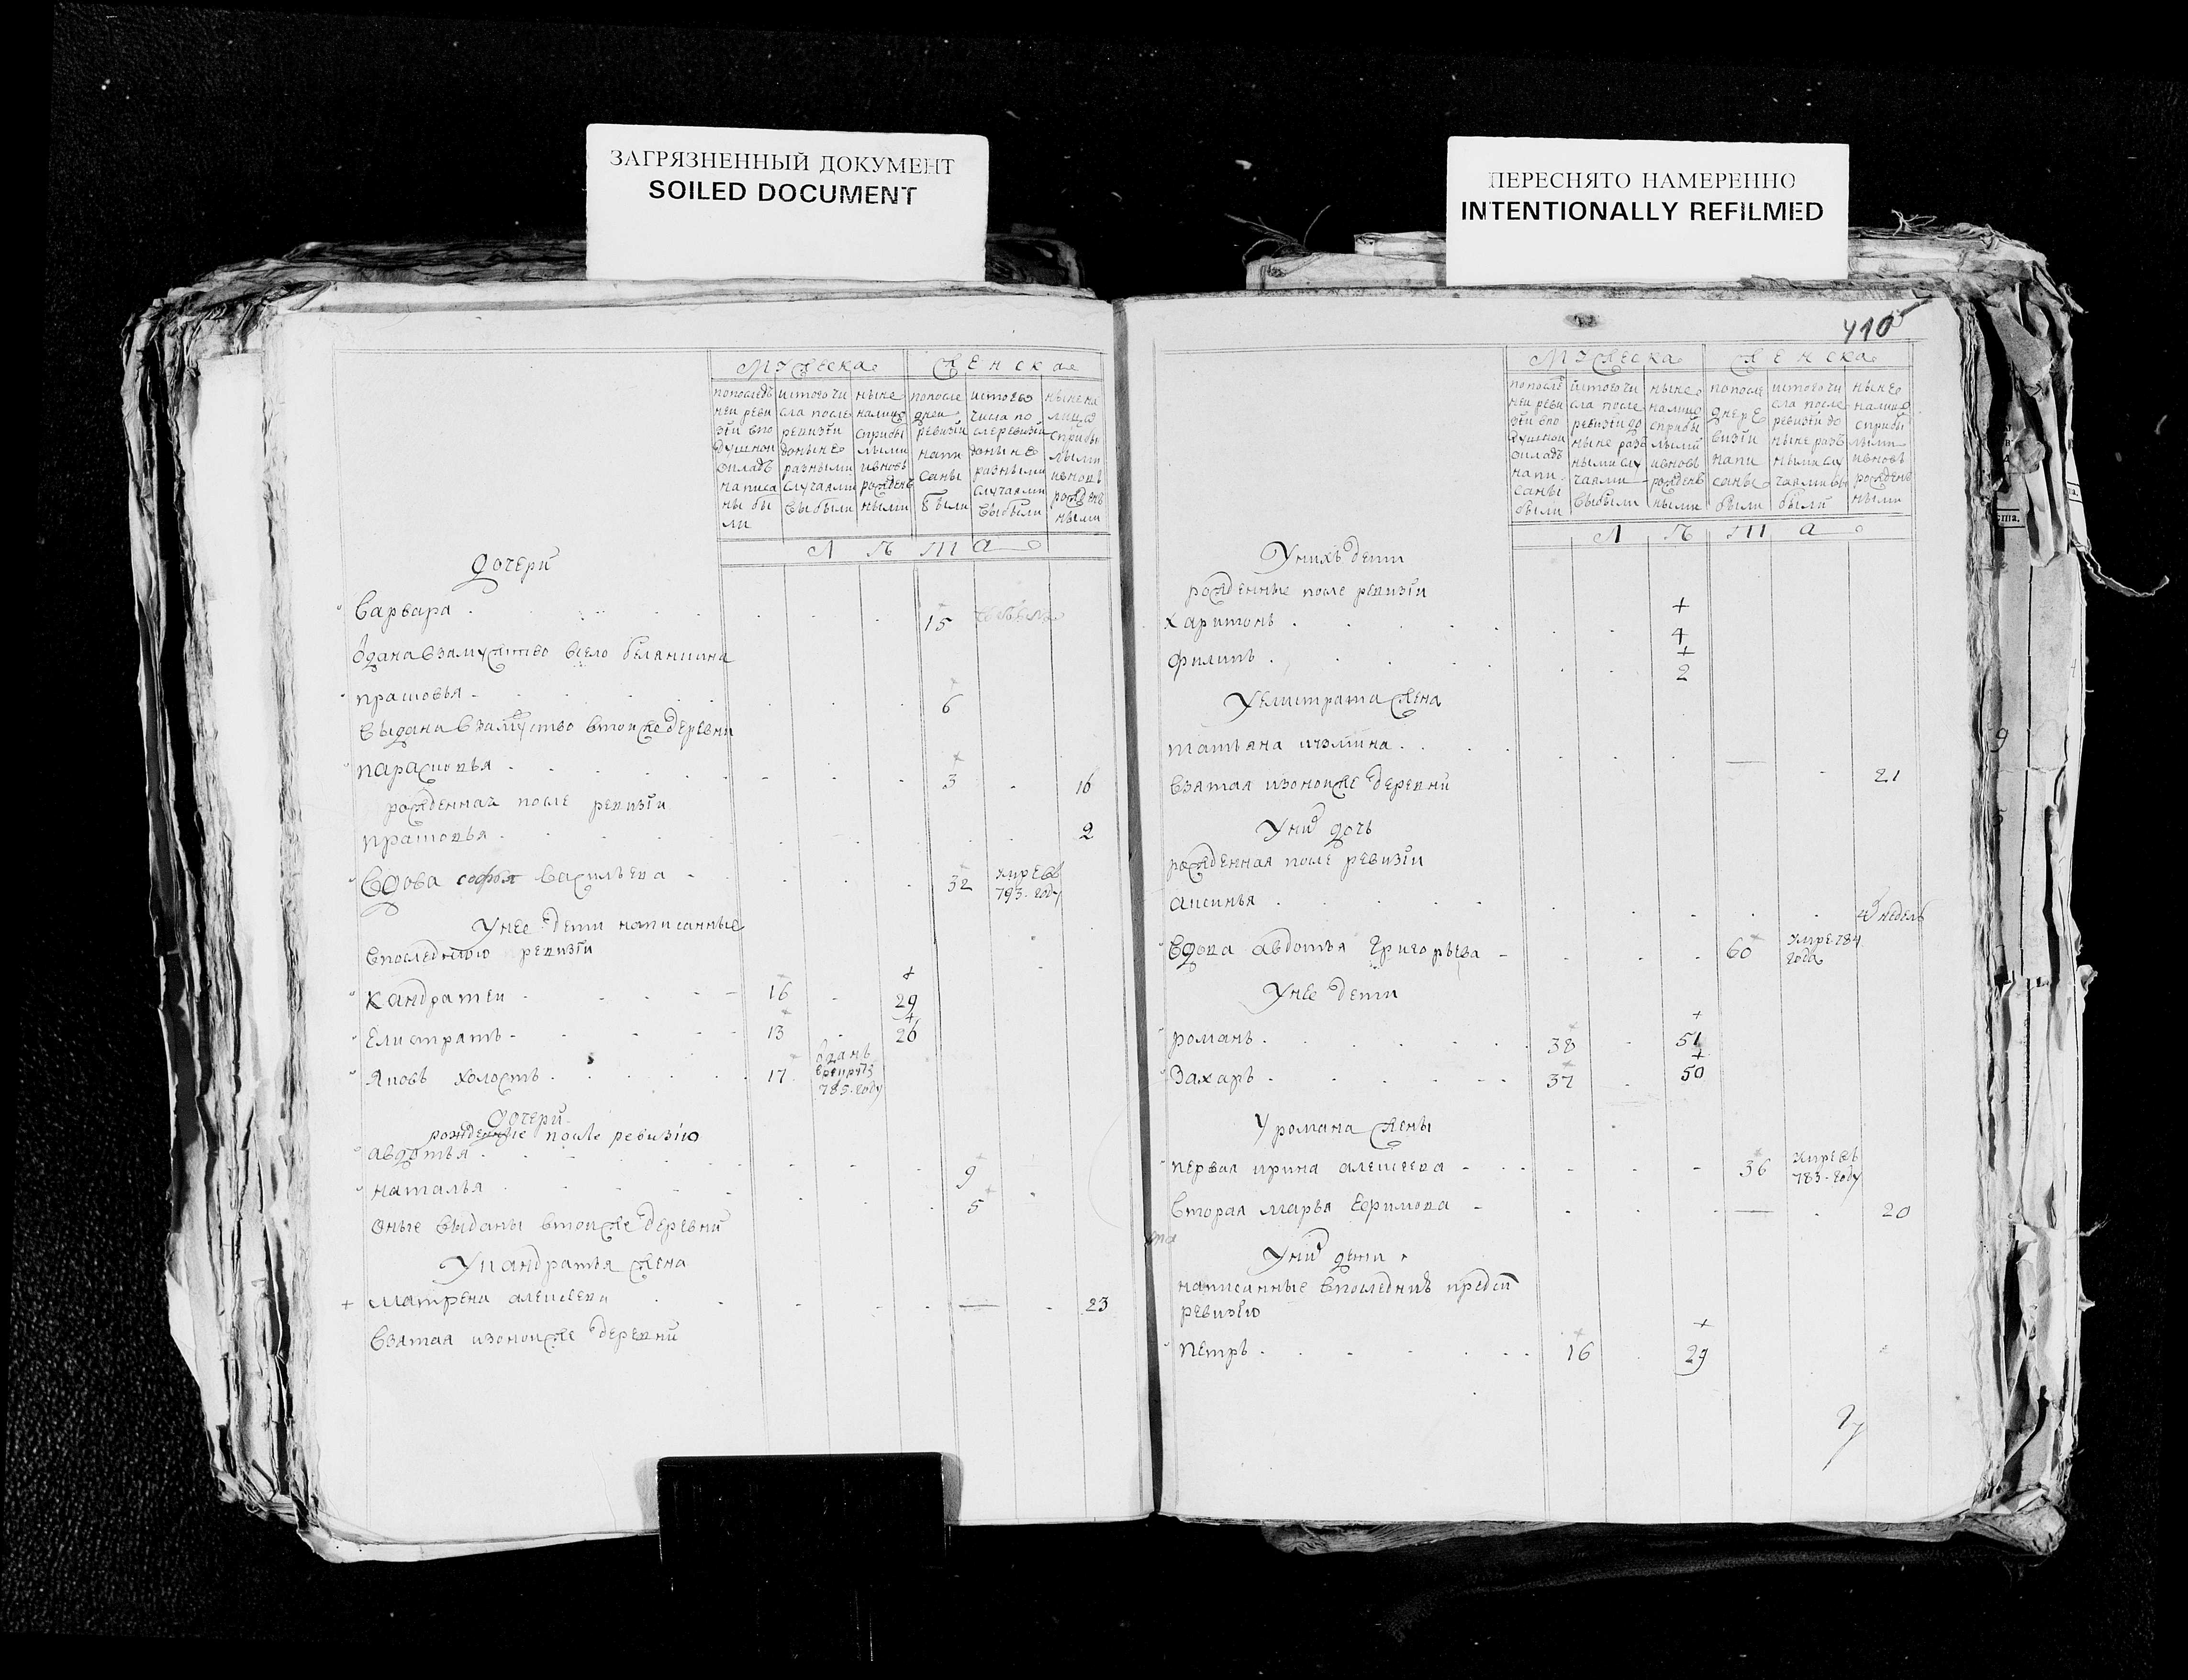 ЗАГРЯЗНЕННЫЙ ДОКУМЕНТ
SOILED DOCUMENT
ПЕРЕСНЯТО НАМЕРЕННО
INTENTIONALLY REFILMED
Мужеска
Женска
попоследъ
ней реви
зїи впо
душной
окладъ
написа
ны бы
ли
истого чи
сла после
ревизїи
доныне
разными
случаями
выбыли
ныне
налицо
сприбы
лыми
ивновь
рожден
ными
попосле
дней
ревизїи
напи
саны
были
истого
числа по
слеревизїи
доныне
разными
случаями
выбыли
нынена
лицо
сприбы
лыми
ивновь
рожден
ными
Лѣта
дочери
варвара 15
одана взамужство всело
прасковья 6
выдана взамужство втой же деревни
парасковья 3 16
рожденная после ревизїи
прасковья 2
вдова софья васильева 32 умре въ 793 году
Унее дети написанные
впоследнюю ревизїи
кандратеи 16 29
Елистратъ 13 26
Яковъ холостъ 17 оданъ в рекруты 785 году
дочери
рожденные после ревизїю
авдотья 9
наталья 5
оные выданы втой же деревни
Укандратья жена
матрена алексеева 23
взятая изоной же деревни
410
Мужеска
Женска
попосле
ней реви
зїи впо
душной
окладъ
напи
саны
были
истого чи
сла после
ревизїи до
ныне раз
ными слу
чаями
выбыли
ныне
налицо
сприбы
лыми
ивновь
рожден
ными
попосле
дней ре
визїи
напи
саны
были
истого чи
сла после
ревизїи до
ныне раз
ными слу
чаями вы
были
ныне
налицо
сприбы
лыми
ивновь
рожден
ными
Лѣта
Унихъ дети
рожденные после ревизїи
харитонъ 4
филипъ 2
Уелистрата жена
татьяна 21
взятая изоной же деревни
Уних дочь
рожденная после ревизїи
аксинья недель
вдова авдотья григорьева 60 умре 784 года
Унее дети
романъ 38 51
Захаръ 37 50
Уромана жены
первая ирина алексеева 36 умре въ 783 году
вторая марья ефимова 20
Уних дети
написанные впоследнюю пред сим
ревизїю
петръ 16 29